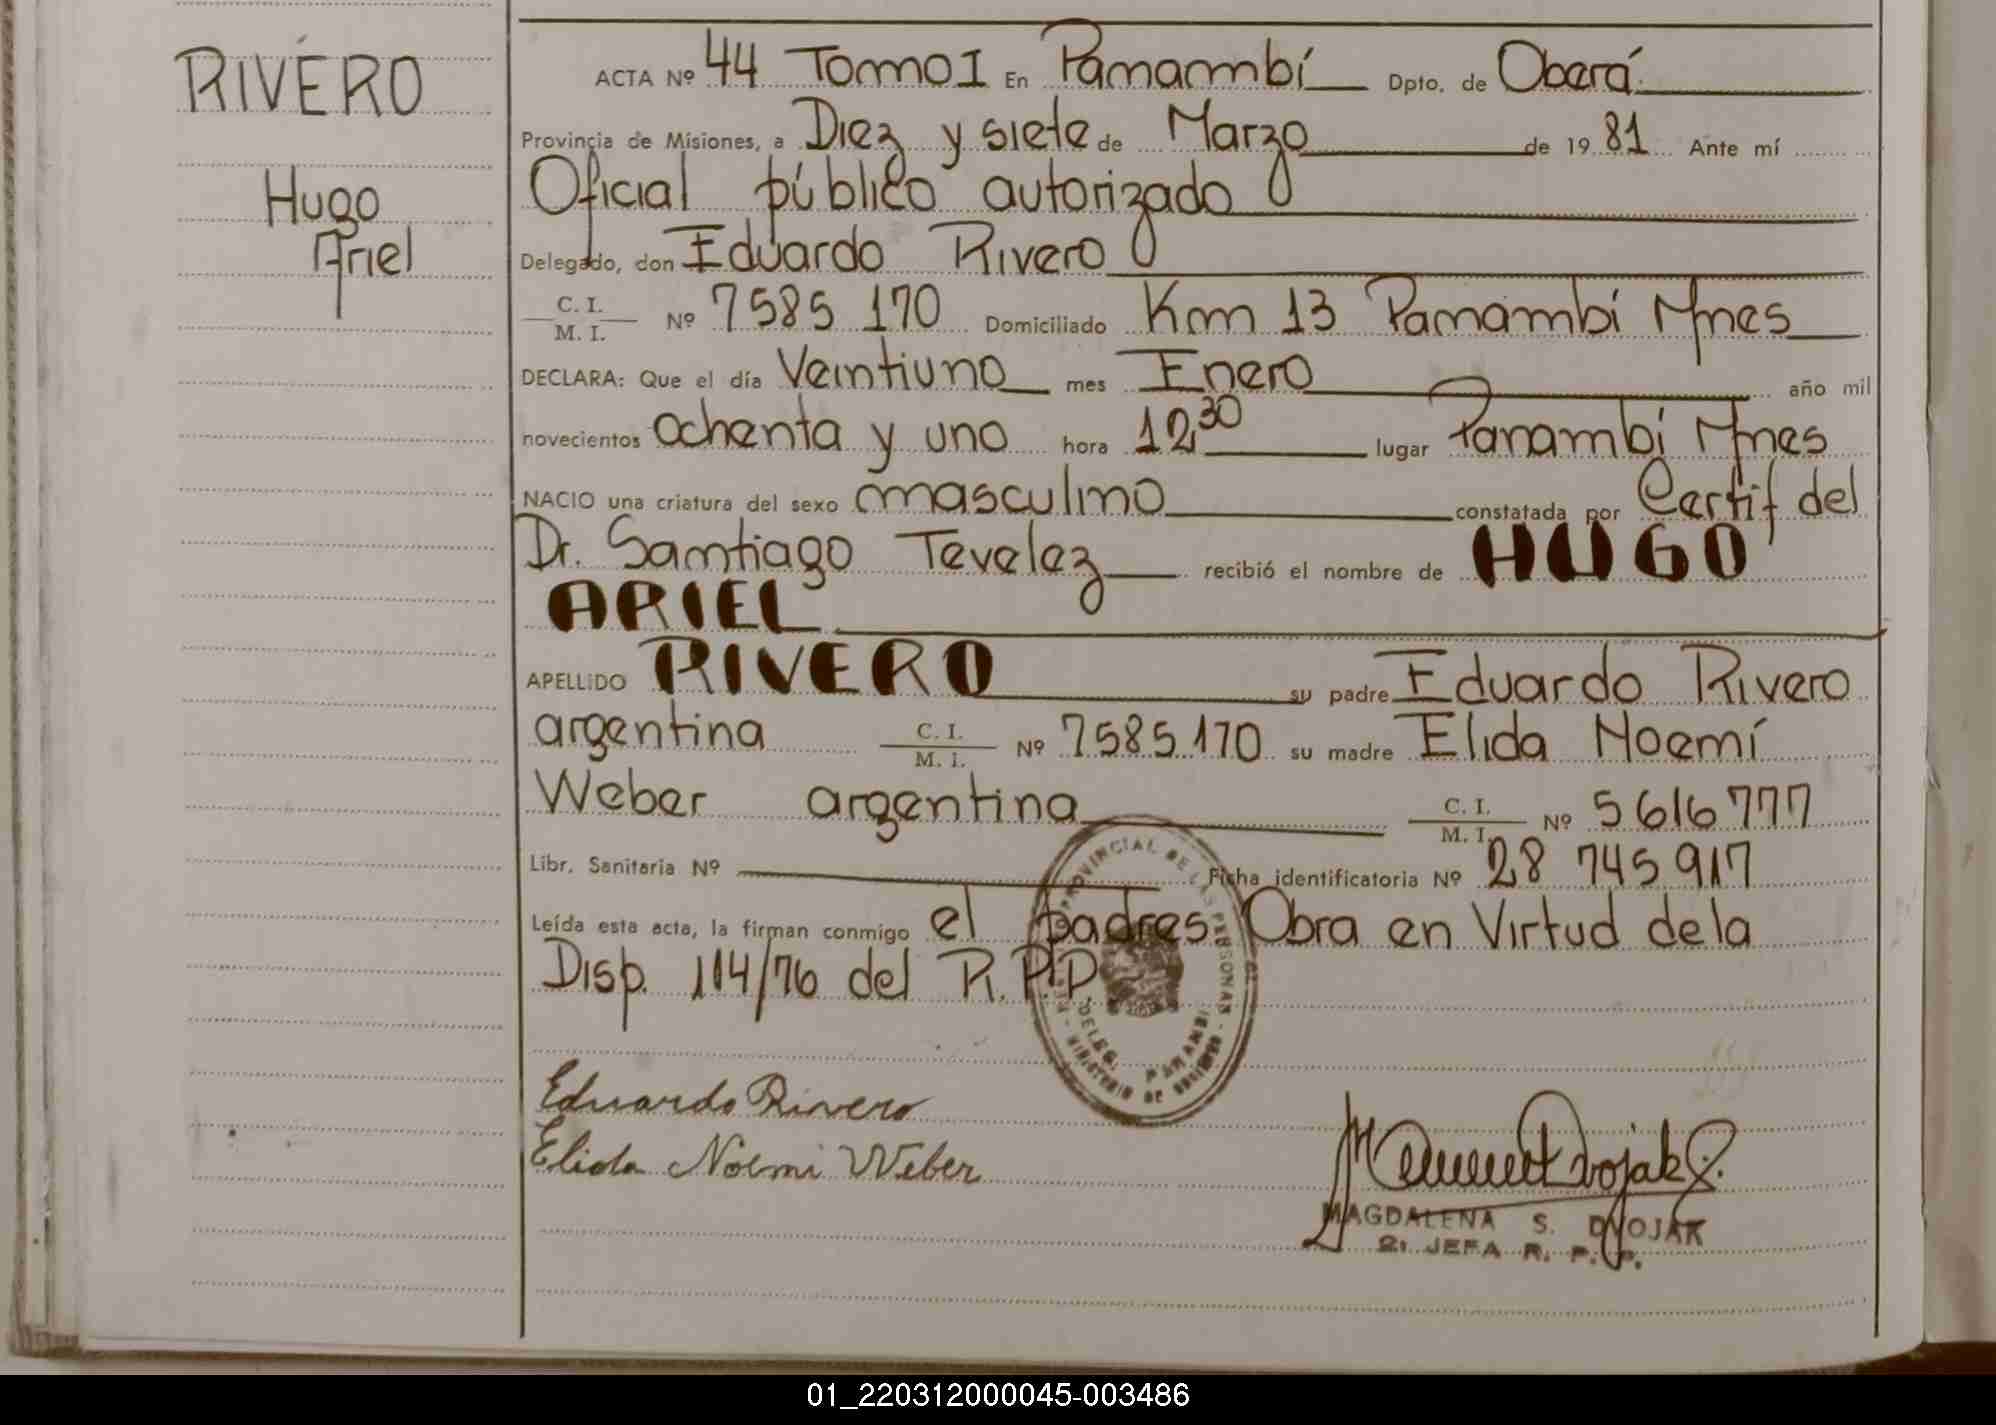 RIVERO
Hugo
Ariel
ACTA Nº 44 Tomo I En Panambí Dpto. de Oberá
Provincia de Misiones, a Diez y siete de Marzo de 19 81 Ante mí
Oficial público autorizado
Delegado, don Eduardo Rivero
C. I.
M. I. Nº 7585 170 Domiciliado Km 13 Panambí Mnes
DECLARA: Que el día Veintiuno mes Enero año mil
novecientos ochenta y uno hora 12,30 lugar Panambí Mnes
NACIO una criatura del sexo masculino constatada por Certif del
Dr. Santiago Tevelez recibió el nombre de HUGO
ARIEL
APELLIDO RIVERO su padre Eduardo Rivero
argentina C. I.
M. I. Nº 7585.170 su madre Elida Noemí
Weber argentina C. I.
M. I. Nº 5616777
Libr. Sanitaria Nº Ficha identificatoria Nº 28 745 917
Leída esta acta, la firman conmigo el padres Obra en Virtud de la
Disp. 114/76 del R.P.P.
PROVINCIAL DE LAS PERSONAS
DELEG. PANAMBI
MINISTERIO DE GOBIERNO
Eduardo Rivero
Elida Noemi Weber
MAGDALENA S. DVOJAK
2ª JEFA R. P. P.
01_220312000045-003486